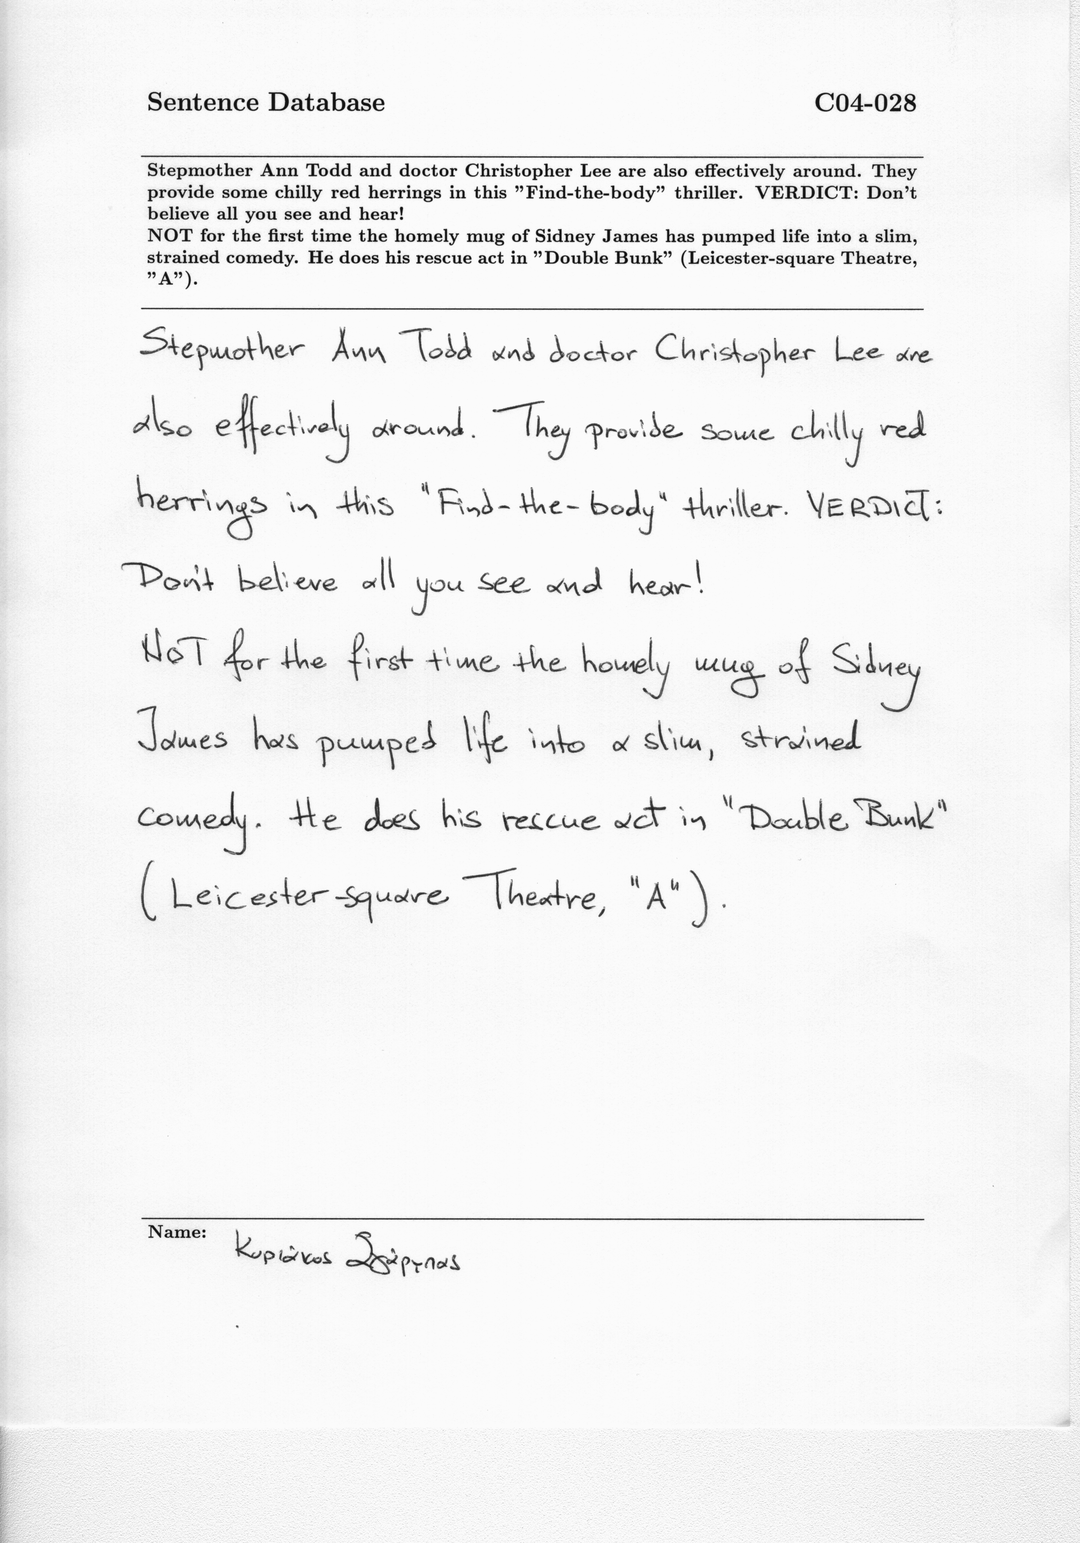 Sentence Database C04-028
Stepmother Ann Todd and doctor Christopher Lee are also effectively around. They
provide some chilly red herrings in this ”Find-the-body” thriller. VERDICT: Don’t
believe all you see and hear!
NOT for the first time the homely mug of Sidney James has pumped life into a slim,
strained comedy. He does his rescue act in ”Double Bunk” (Leicester-square Theatre,
”A”).
Stepmother Ann Todd and doctor Christopher Lee are
also effectively around. They provide some chilly red
herrings in this "Find-the-body" thriller. VERDICT:
Don't believe all you see and hear!
NOT for the first time the homely mug of Sidney
James has pumped life into a slim, strained
comedy. He does his rescue act in "Double Bunk"
(Leicester-square Theatre, "A").
Name: Κυριάκος